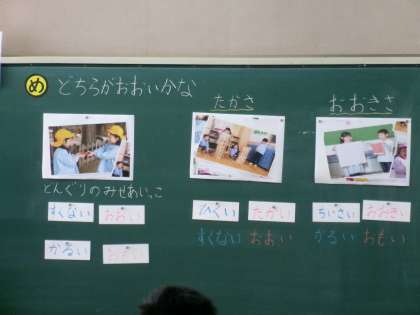 め どちらがおおいかな
たかさ
おおきさ
どんぐりのみせあいっこ
すくない おおい
ひくい たかい
ちいさい おおきい
すくない おおい
かるい おもい
かるい